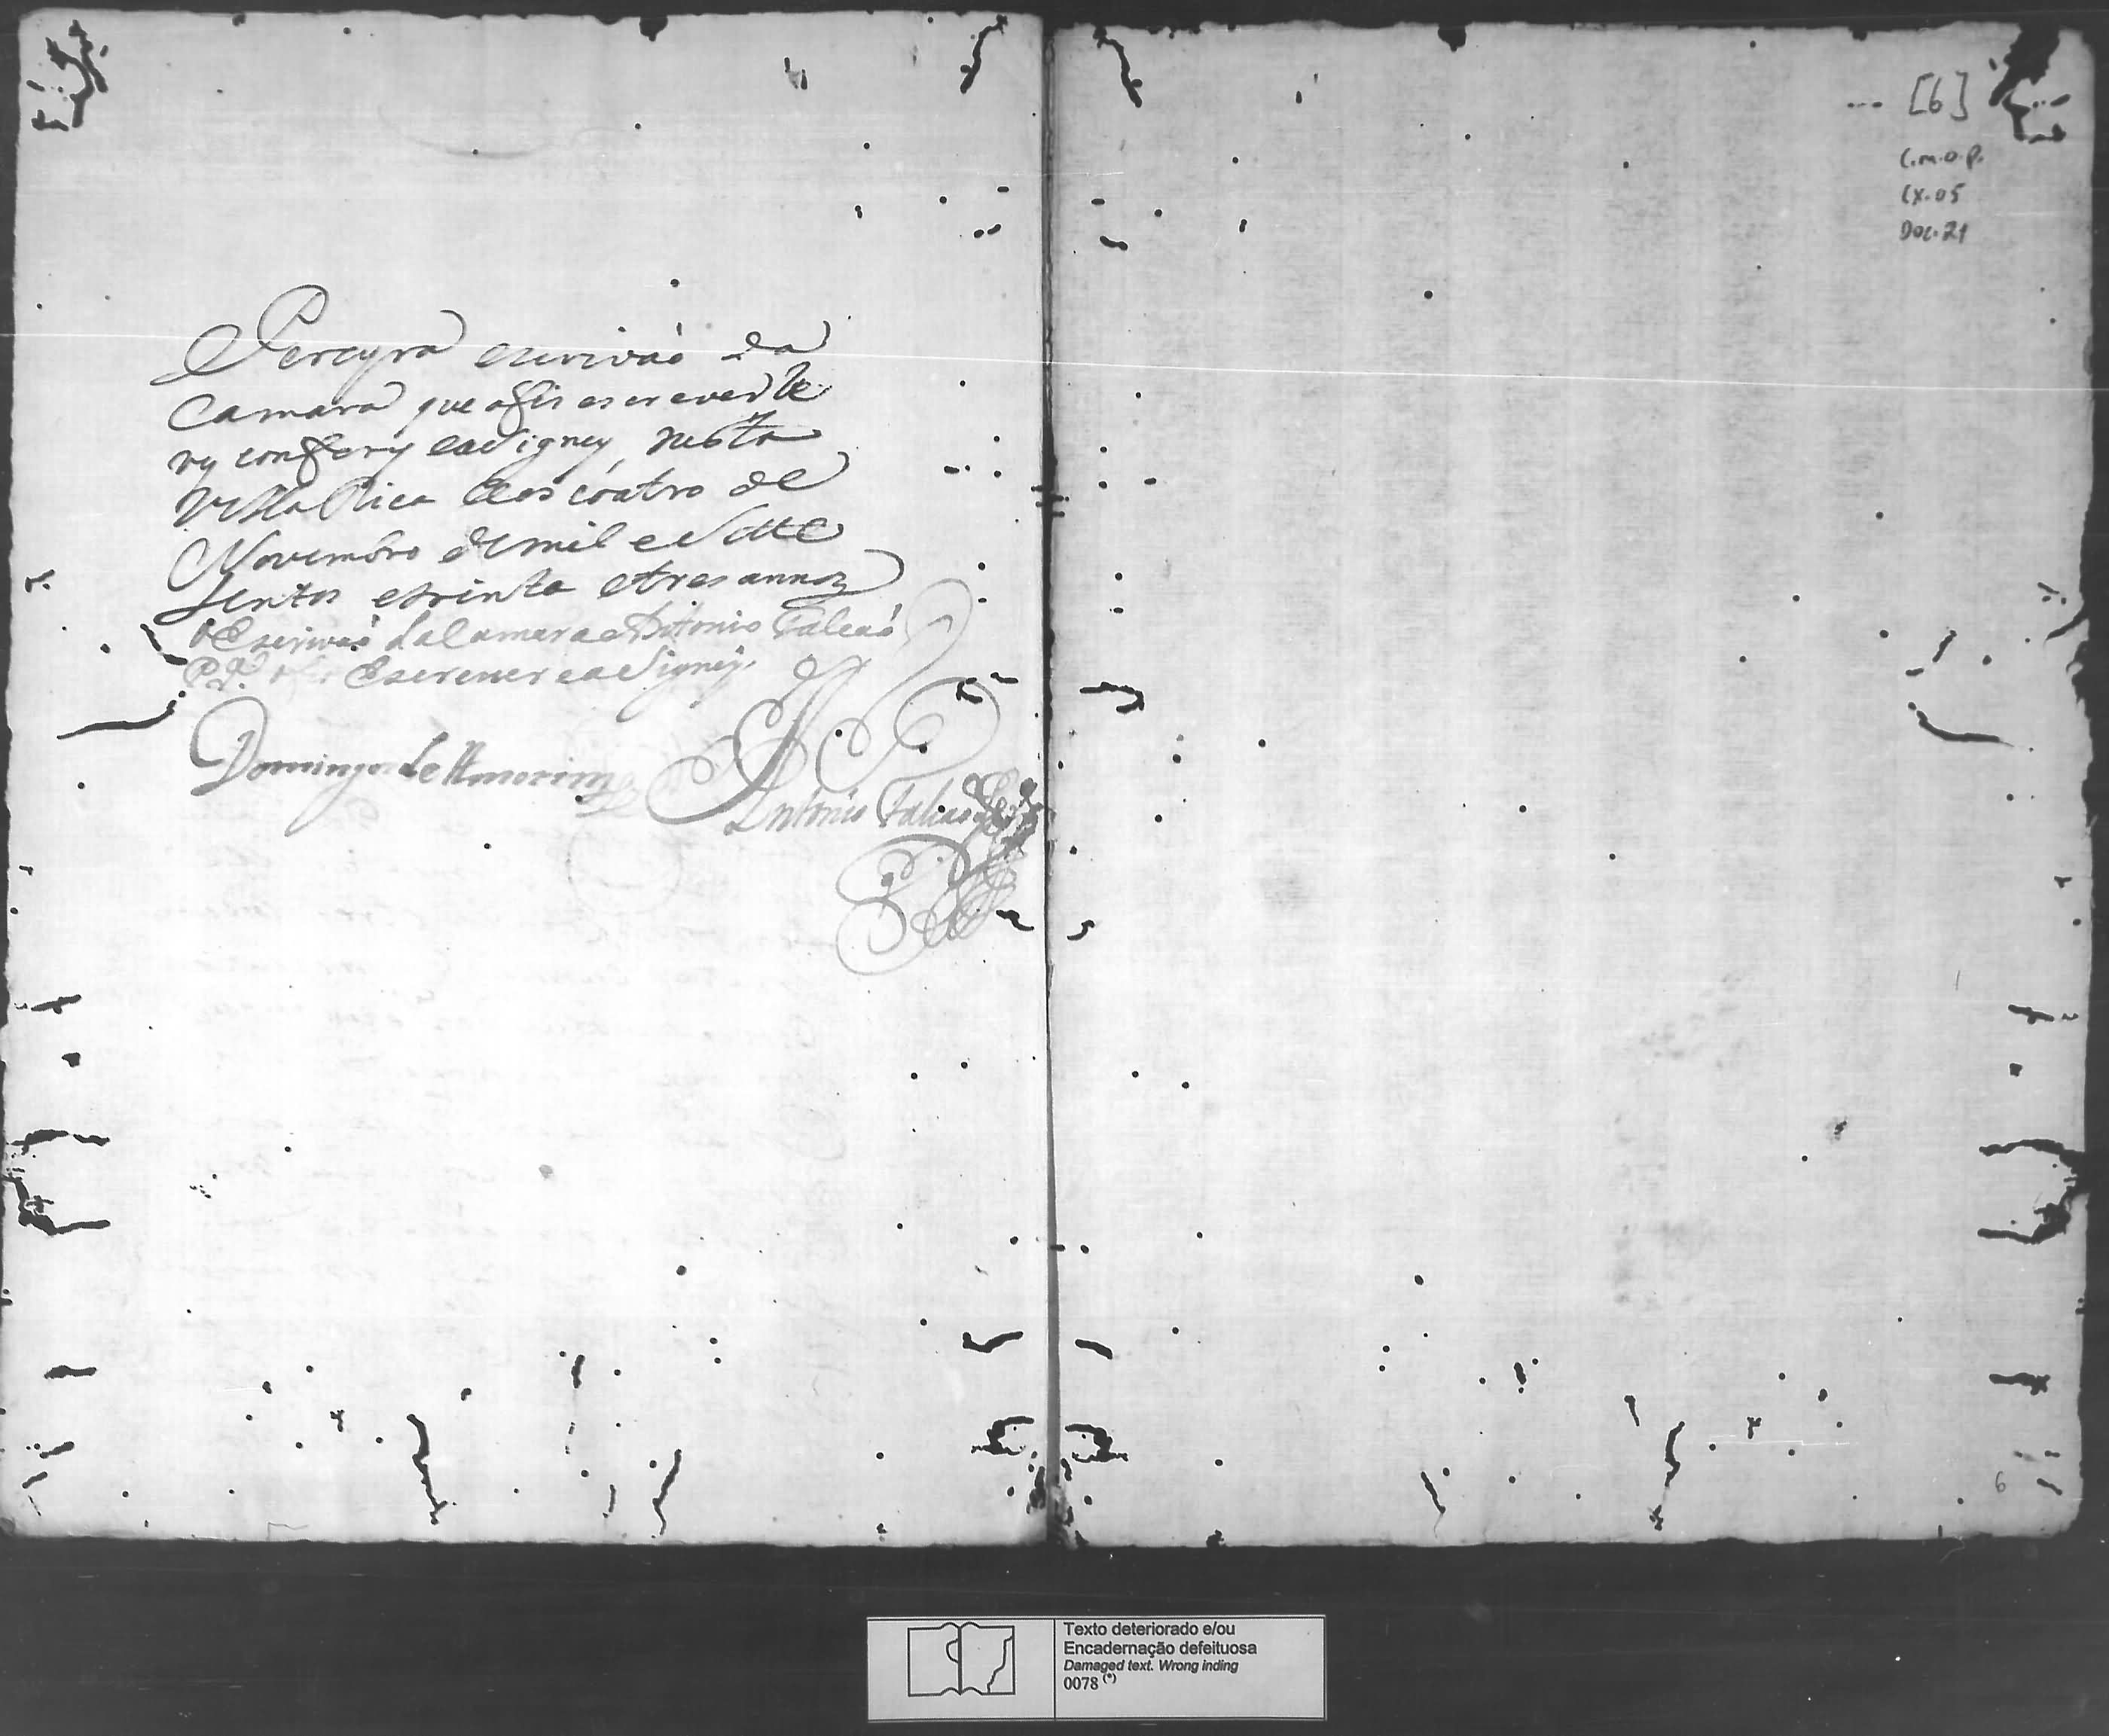 Pereyra escrivaó da
Camara que afis escrever Ve
ry confery easigney nesta
Villa Rica aos coatro de
Novembro de mil e Sette
Sentos etrinta etres annoz
oEscrivaó daCamara Antonio Falcaó
Pr.ª ofis Escrever easigney.
Domingos de Amorim
Antonio Falcao
[6]
C.M.O.P.
CX.05
DOC.21
6
Texto deteriorado e/ou
Encadernação defeituosa
Damaged text. Wrong inding
0078 (*)